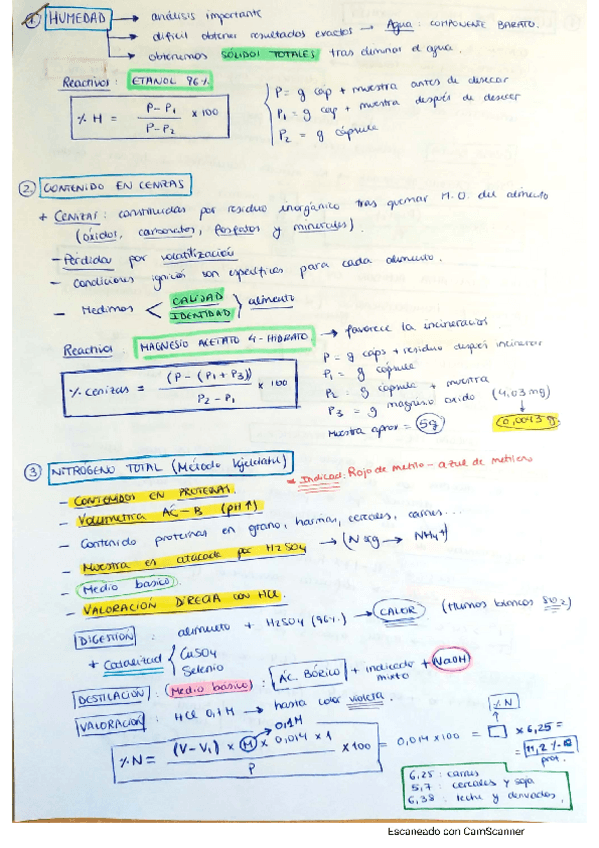 ① HUMEDAD → análisis importante
→ difícil obtener resultados exactos → Agua: COMPONENTE BARATO.
→ obtenemos SÓLIDOS TOTALES tras eliminar el agua.
Reactivos: ETANOL 96%
% H = P-P₁ / P-P₂ x 100
P = g cap + muestra antes de desecar
P₁ = g cap + muestra después de desecar
P₂ = g cápsula
② CONTENIDO EN CENIZAS
+ CENIZAS: constituidas por residuo inorgánico tras quemar M.O. del alimento
(óxidos, carbonatos, fosfatos y minerales).
- Pérdidas por volatilización
- Condiciones ignición son específicas para cada alimento.
- Medimos < CALIDAD IDENTIDAD } alimento
Reactivos: MAGNESIO ACETATO 4-HIDRATO → favorece la incineración.
% cenizas = (P - (P₁ + P₃)) / P₂ - P₁ x 100
P = g caps + residuo despés incinerar
P₁ = g cápsula
P₂ = g cápsula + muestra
P₃ = g magnesio oxido (4,03 mg)
Muestra aprox = 5g
0,0043 g.
③ NITRÓGENO TOTAL (Método Kjeldahl)
* Indicad: Rojo de metilo - azul de metileno
- CONTENIDOS EN PROTEÍNAS.
- Volumetría AC-B (pH↑)
- Contenido proteínas en grano, harinas, cereales, carnes...
- Muestra es atacada por H₂SO₄ → (N org → NH₄⁺)
- Medio básico.
- VALORACIÓN DIRECTA con HCl.
DIGESTIÓN: alimento + H₂SO₄ (96%) → CALOR (Humos blancos SO₂)
+ Catalizad { CuSO₄ Selenio
DESTILACIÓN: (Medio básico): ÁC. BÓRICO + indicador mixto + NaOH
VALORACIÓN: HCl 0,1M → hasta color violeta.
0,1M
% N
% N = (V-V₁) x M x 0,014 x 1 / P x 100 = 0,014 x 100 = □ x 6,25 =
= 11,2 % prot.
6,25: carnes
5,7: cereales y soja
6,38: leche y derivados.
Escaneado con CamScanner